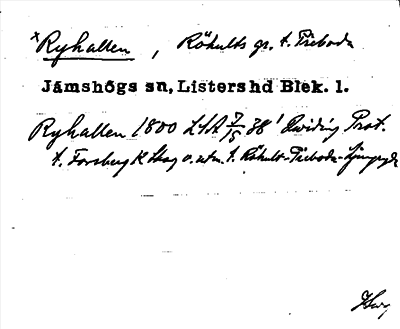 x Ryhallen, Rökults gr. t. Fäeboda
Jämshögs sn, Listers hd Blek. l.
Ryhallen 1800 LSA 7/15 38' Prot.
t. Forsberg K Skog o. utm. t. Rökult-Fäeboda-Ljungryda